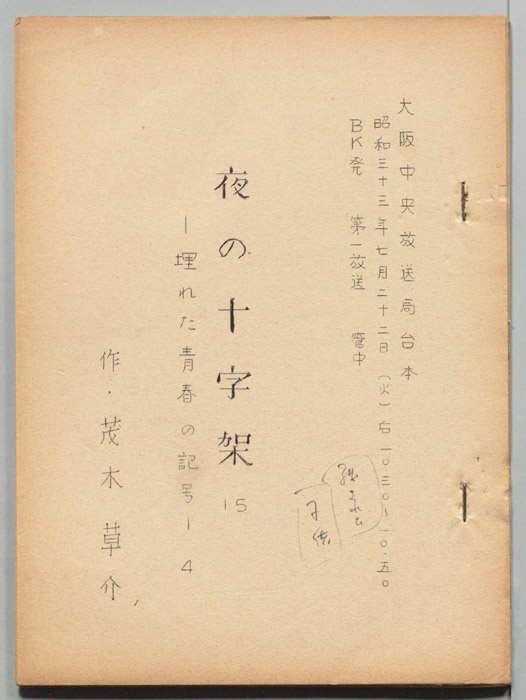 大阪中央放送局台本
昭和三十三年七月二十二日（火）后一〇・三〇〜一〇・五〇
BK発　第一放送　管中
夜の十字架　15
―埋れた青春の記号―4
作・茂木草介
子供